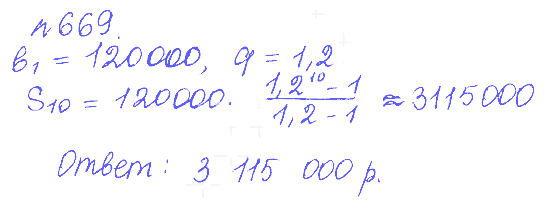 n 669.
b₁ = 120000, q = 1,2
S₁₀ = 120000 · (1,2¹⁰ - 1)/(1,2 - 1) ≈ 3115000
Ответ: 3 115 000 р.